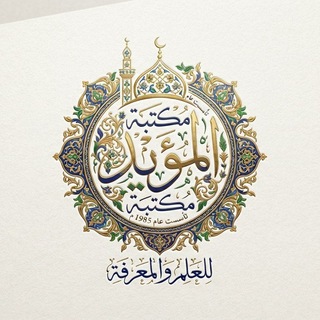 تأسست عام
مكتبة
المؤيد
مكتبة
تأسست عام 1985 م
للعلم والمعرفة